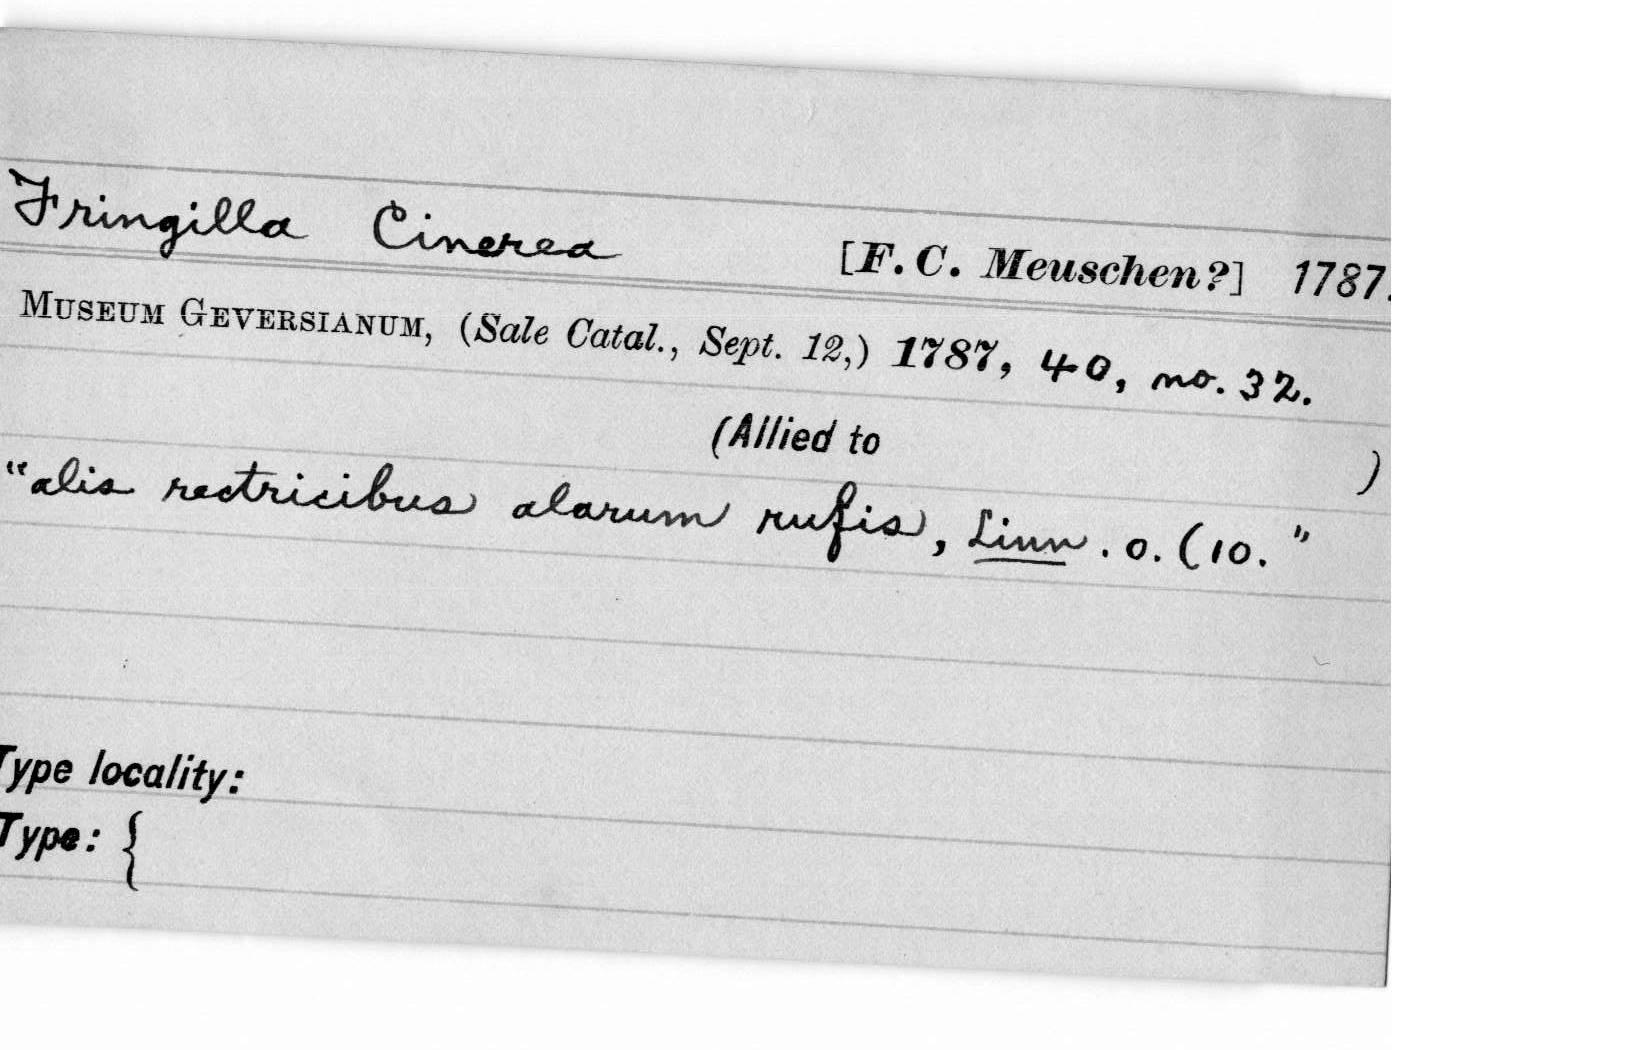 Fringilla Cinerea [F. C. Meuschen?] 1787.
MUSEUM GEVERSIANUM, (Sale Catal., Sept. 12,) 1787, 40, no. 32.
(Allied to )
"alis rectricibus alarum rufis, Linn. o. (10."
Type locality:
Type: {